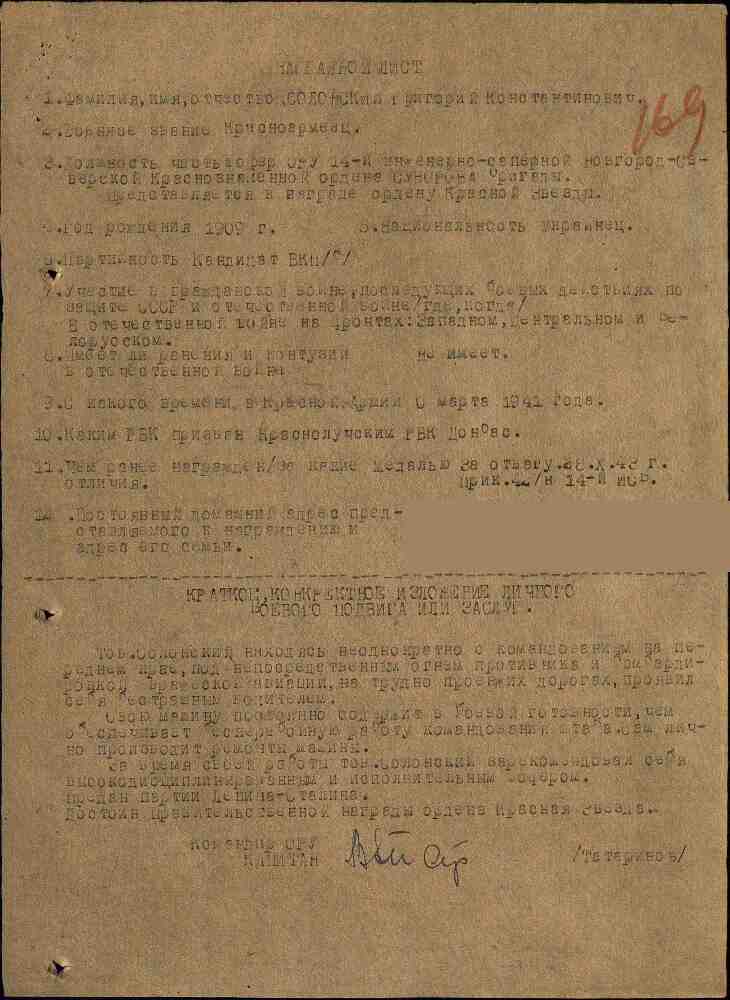 НАГРАДНОЙ ЛИСТ
169
1.Фамилия,имя,отчество СОЛОНСКИЙ Григорий Константинович.
2.Военное звание Красноармеец.
3.Должность часть шофер ОРУ 14-й инженерно-саперной Новгород-Се-
верской Краснознаменной ордена СУВОРОВА бригады.
Представляется к награде ордену Красной Звезды.
4.Год рождения 1909 г. 5.Национальность украинец.
6.Партийность Кандидат ВКП/б/
7.Участие в гражданской войне,последующих боевых действиях по
защите СССР и отечественной войне/где,когда/
В отечественной войне на фронтах:Западном,Центральном и Бе-
лорусском.
8.Имеет ли ранения и контузии не имеет.
в отечественной войне
9.С какого времени в Красной Армии 6 марта 1941 года.
10.Каким РВК призван Краснолучским РВК Донбас.
11.Чем ранее награжден/за какие медалью За отвагу.28.X.43 г.
отличия. Прик.42/н 14-й ИСБ.
12.Постоянный домашний адрес пред-
ставляемого к награждению и
адрес его семьи.
КРАТКОЕ,КОНКРЕТНОЕ ИЗЛОЖЕНИЕ ЛИЧНОГО
БОЕВОГО ПОДВИГА ИЛИ ЗАСЛУГ.
Тов.Солонский находясь неоднократно с командованием на пе-
реднем крае,под непосредственным огнем противника и бомбарди-
ровкой вражеской авиации,на трудно проезжих дорогах,проявил
себя бестрашным водителем.
Свою машину постоянно содержит в боевой готовности,чем
обеспечивает бесперебойную работу командования штаба.Сам лич-
но производит ремонты машины.
За время своей работы тов.Солонский зарекомендовал себя
высокодисциплинированным и исполнительным шофером.
Предан партии Ленина-Сталина.
Достоин правительственной награды ордена Красная Звезда.
Командир ОРУ
КАПИТАН /Татаринов/